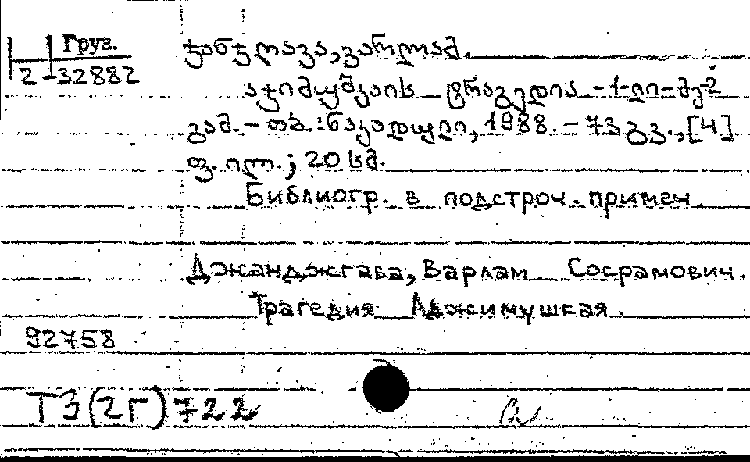 Груз.
2-32882
ჯანჯღავა, ვარლამ.
აჯიმუშკაის ტრაგედია. - 1-ლი-
გამ. - თბ.: ნაკადული, 1988. - 73 გვ., [4]
ფ. ილ.; 20 სმ.
Библиогр. в подстроч. примеч
Джанджгава, Варлам Сосрамович.
Трагедия Аджимушкая.
92758
Т3(2Г)722